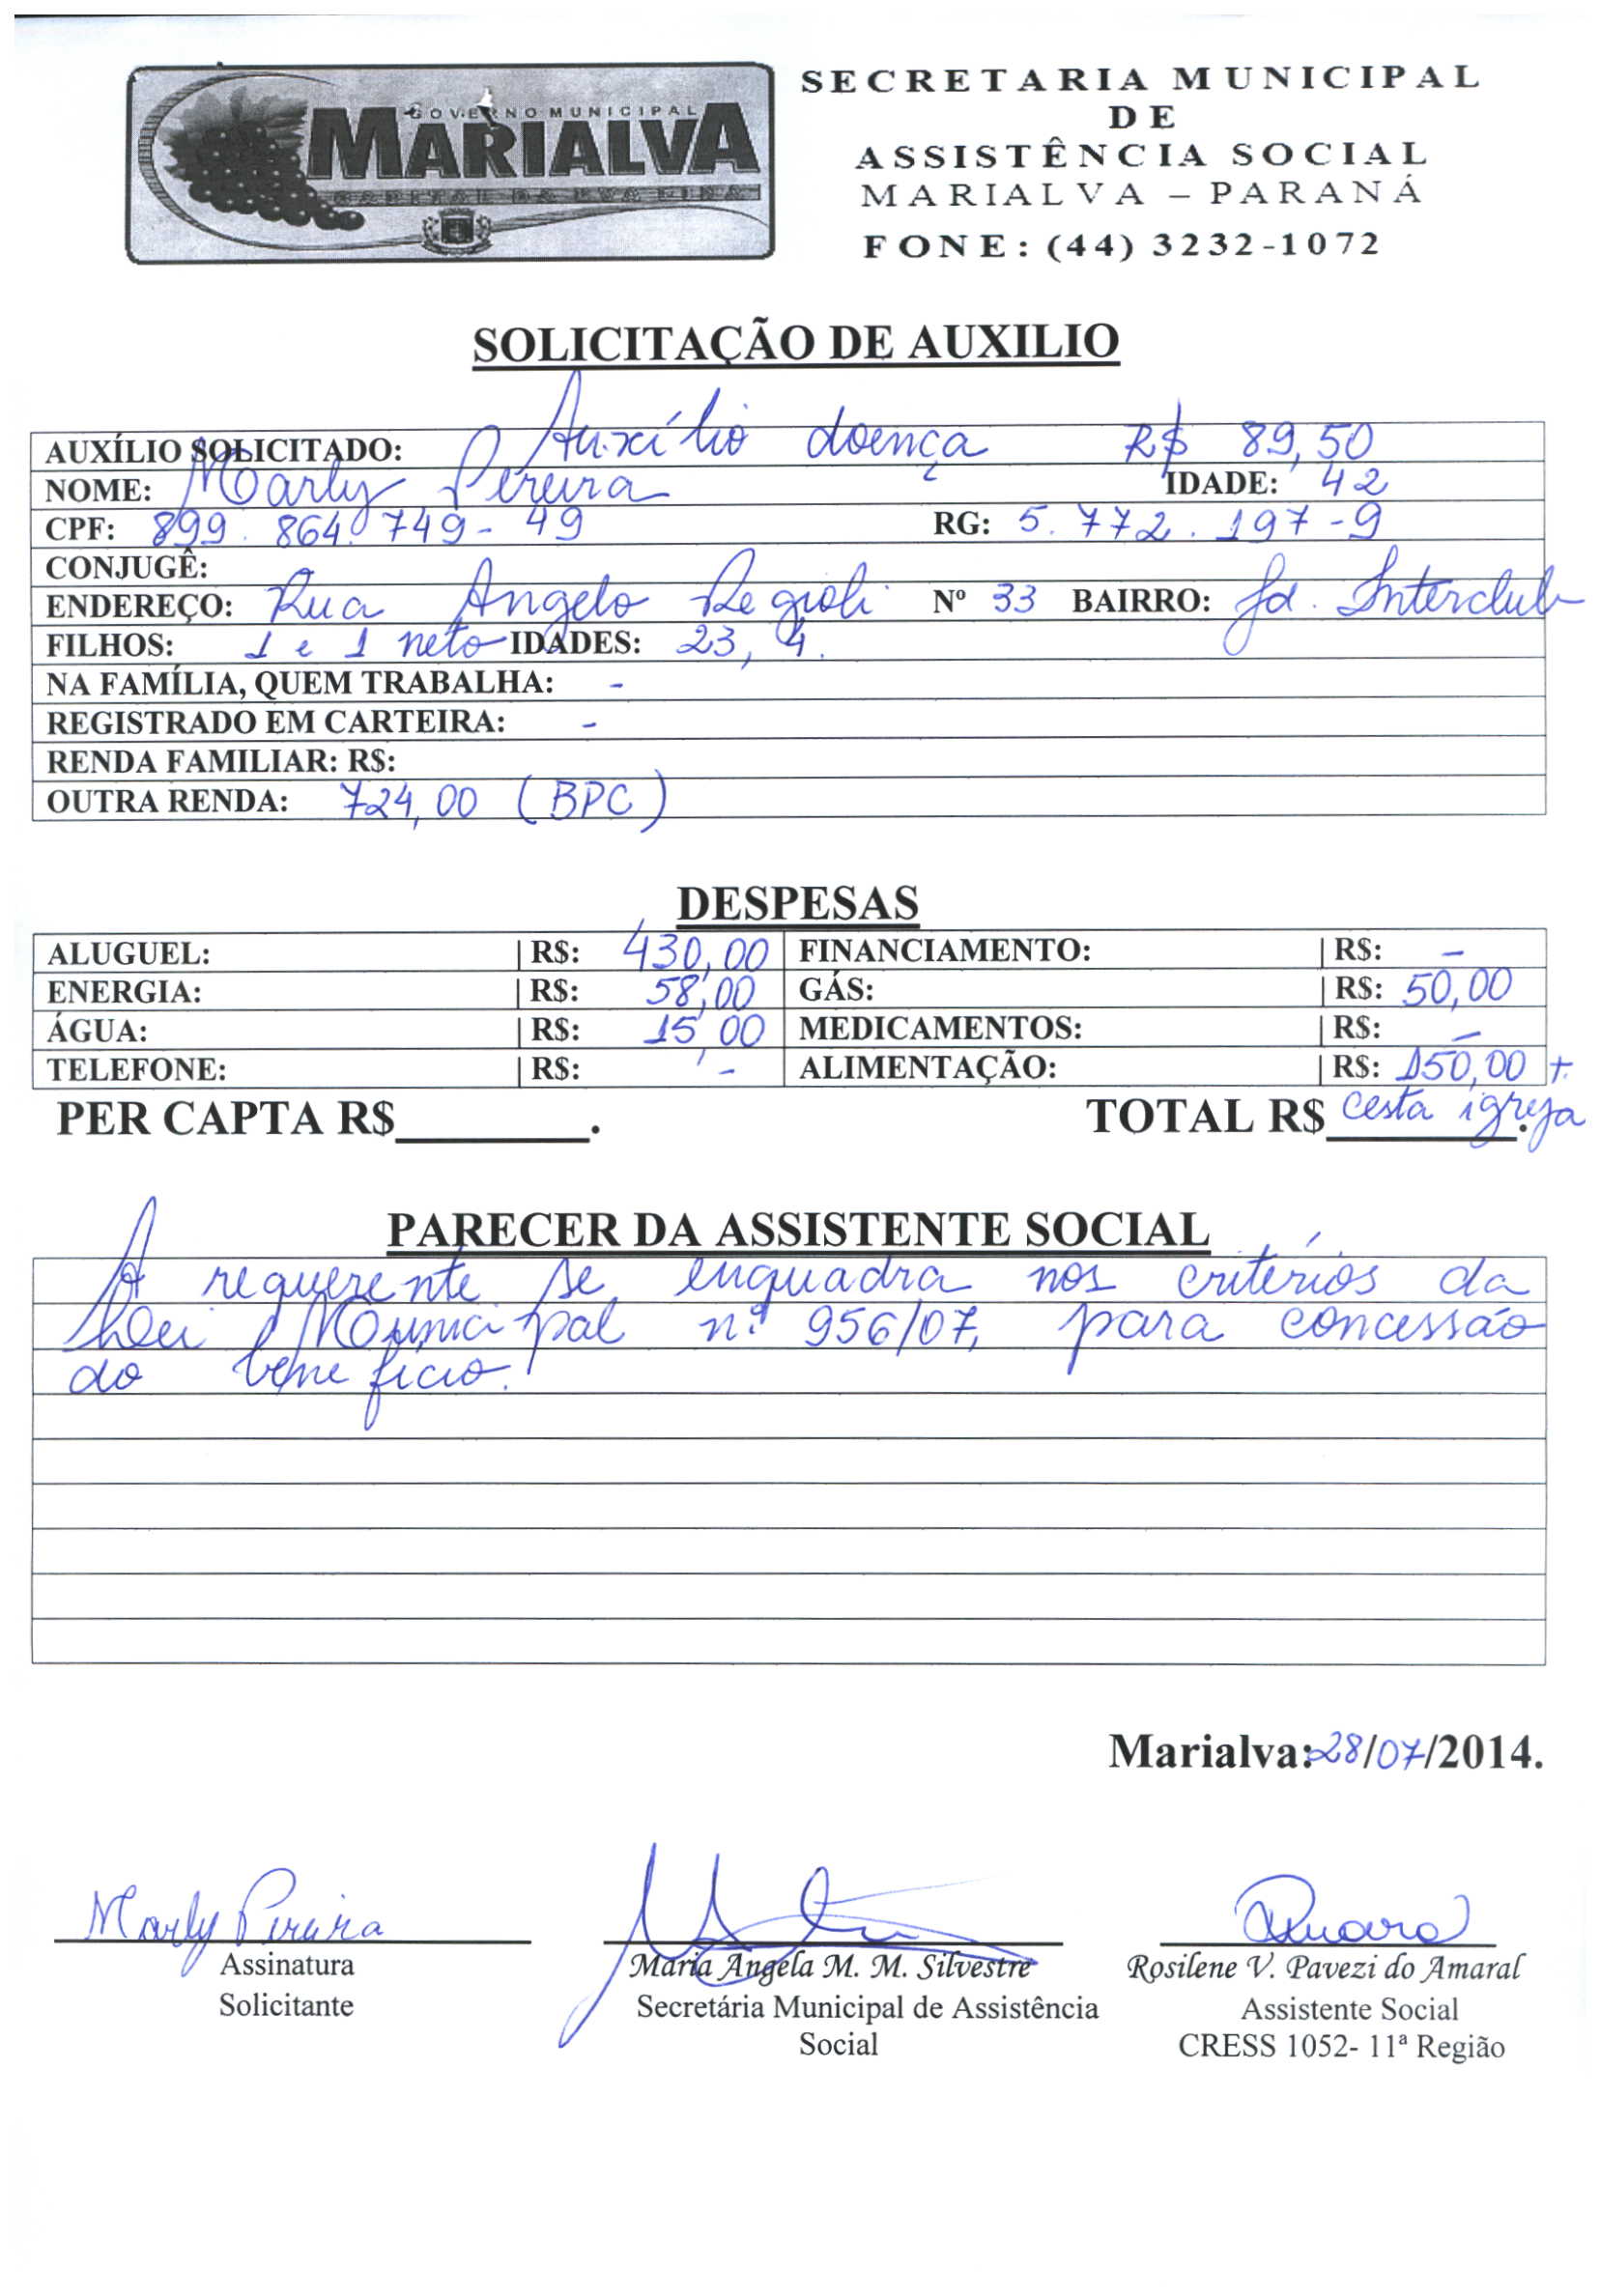 GOVERNO MUNICIPAL
MARIALVA
CAPITAL DA UVA FINA
SECRETARIA MUNICIPAL
DE
ASSISTÊNCIA SOCIAL
MARIALVA – PARANÁ
FONE: (44) 3232-1072
SOLICITAÇÃO DE AUXILIO
AUXÍLIO SOLICITADO: Auxílio doença R$ 89,50
NOME: Marly Pereira IDADE: 42
CPF: 899.864.749-49 RG: 5.772.197-9
CONJUGÊ:
ENDEREÇO: Rua Angelo Regioli Nº 33 BAIRRO: Jd. Interclub
FILHOS: 1 e 1 neto IDADES: 23, 4.
NA FAMÍLIA, QUEM TRABALHA: -
REGISTRADO EM CARTEIRA: -
RENDA FAMILIAR: R$:
OUTRA RENDA: 724,00 (BPC)
DESPESAS
ALUGUEL: | R$: 430,00 FINANCIAMENTO: | R$: -
ENERGIA: | R$: 58,00 GÁS: | R$: 50,00
ÁGUA: | R$: 15,00 MEDICAMENTOS: | R$: -
TELEFONE: | R$: - ALIMENTAÇÃO: | R$: 150,00 +
PER CAPTA R$________. TOTAL R$ cesta igreja.
PARECER DA ASSISTENTE SOCIAL
A requerente se enquadra nos critérios da
Lei Municipal nº 956/07, para concessão
do benefício.
Marialva: 28/07/2014.
Marly Pereira
Assinatura
Solicitante
Maria Angela M. M. Silvestre
Secretária Municipal de Assistência
Social
Rosilene V. Pavezi do Amaral
Assistente Social
CRESS 1052- 11ª Região